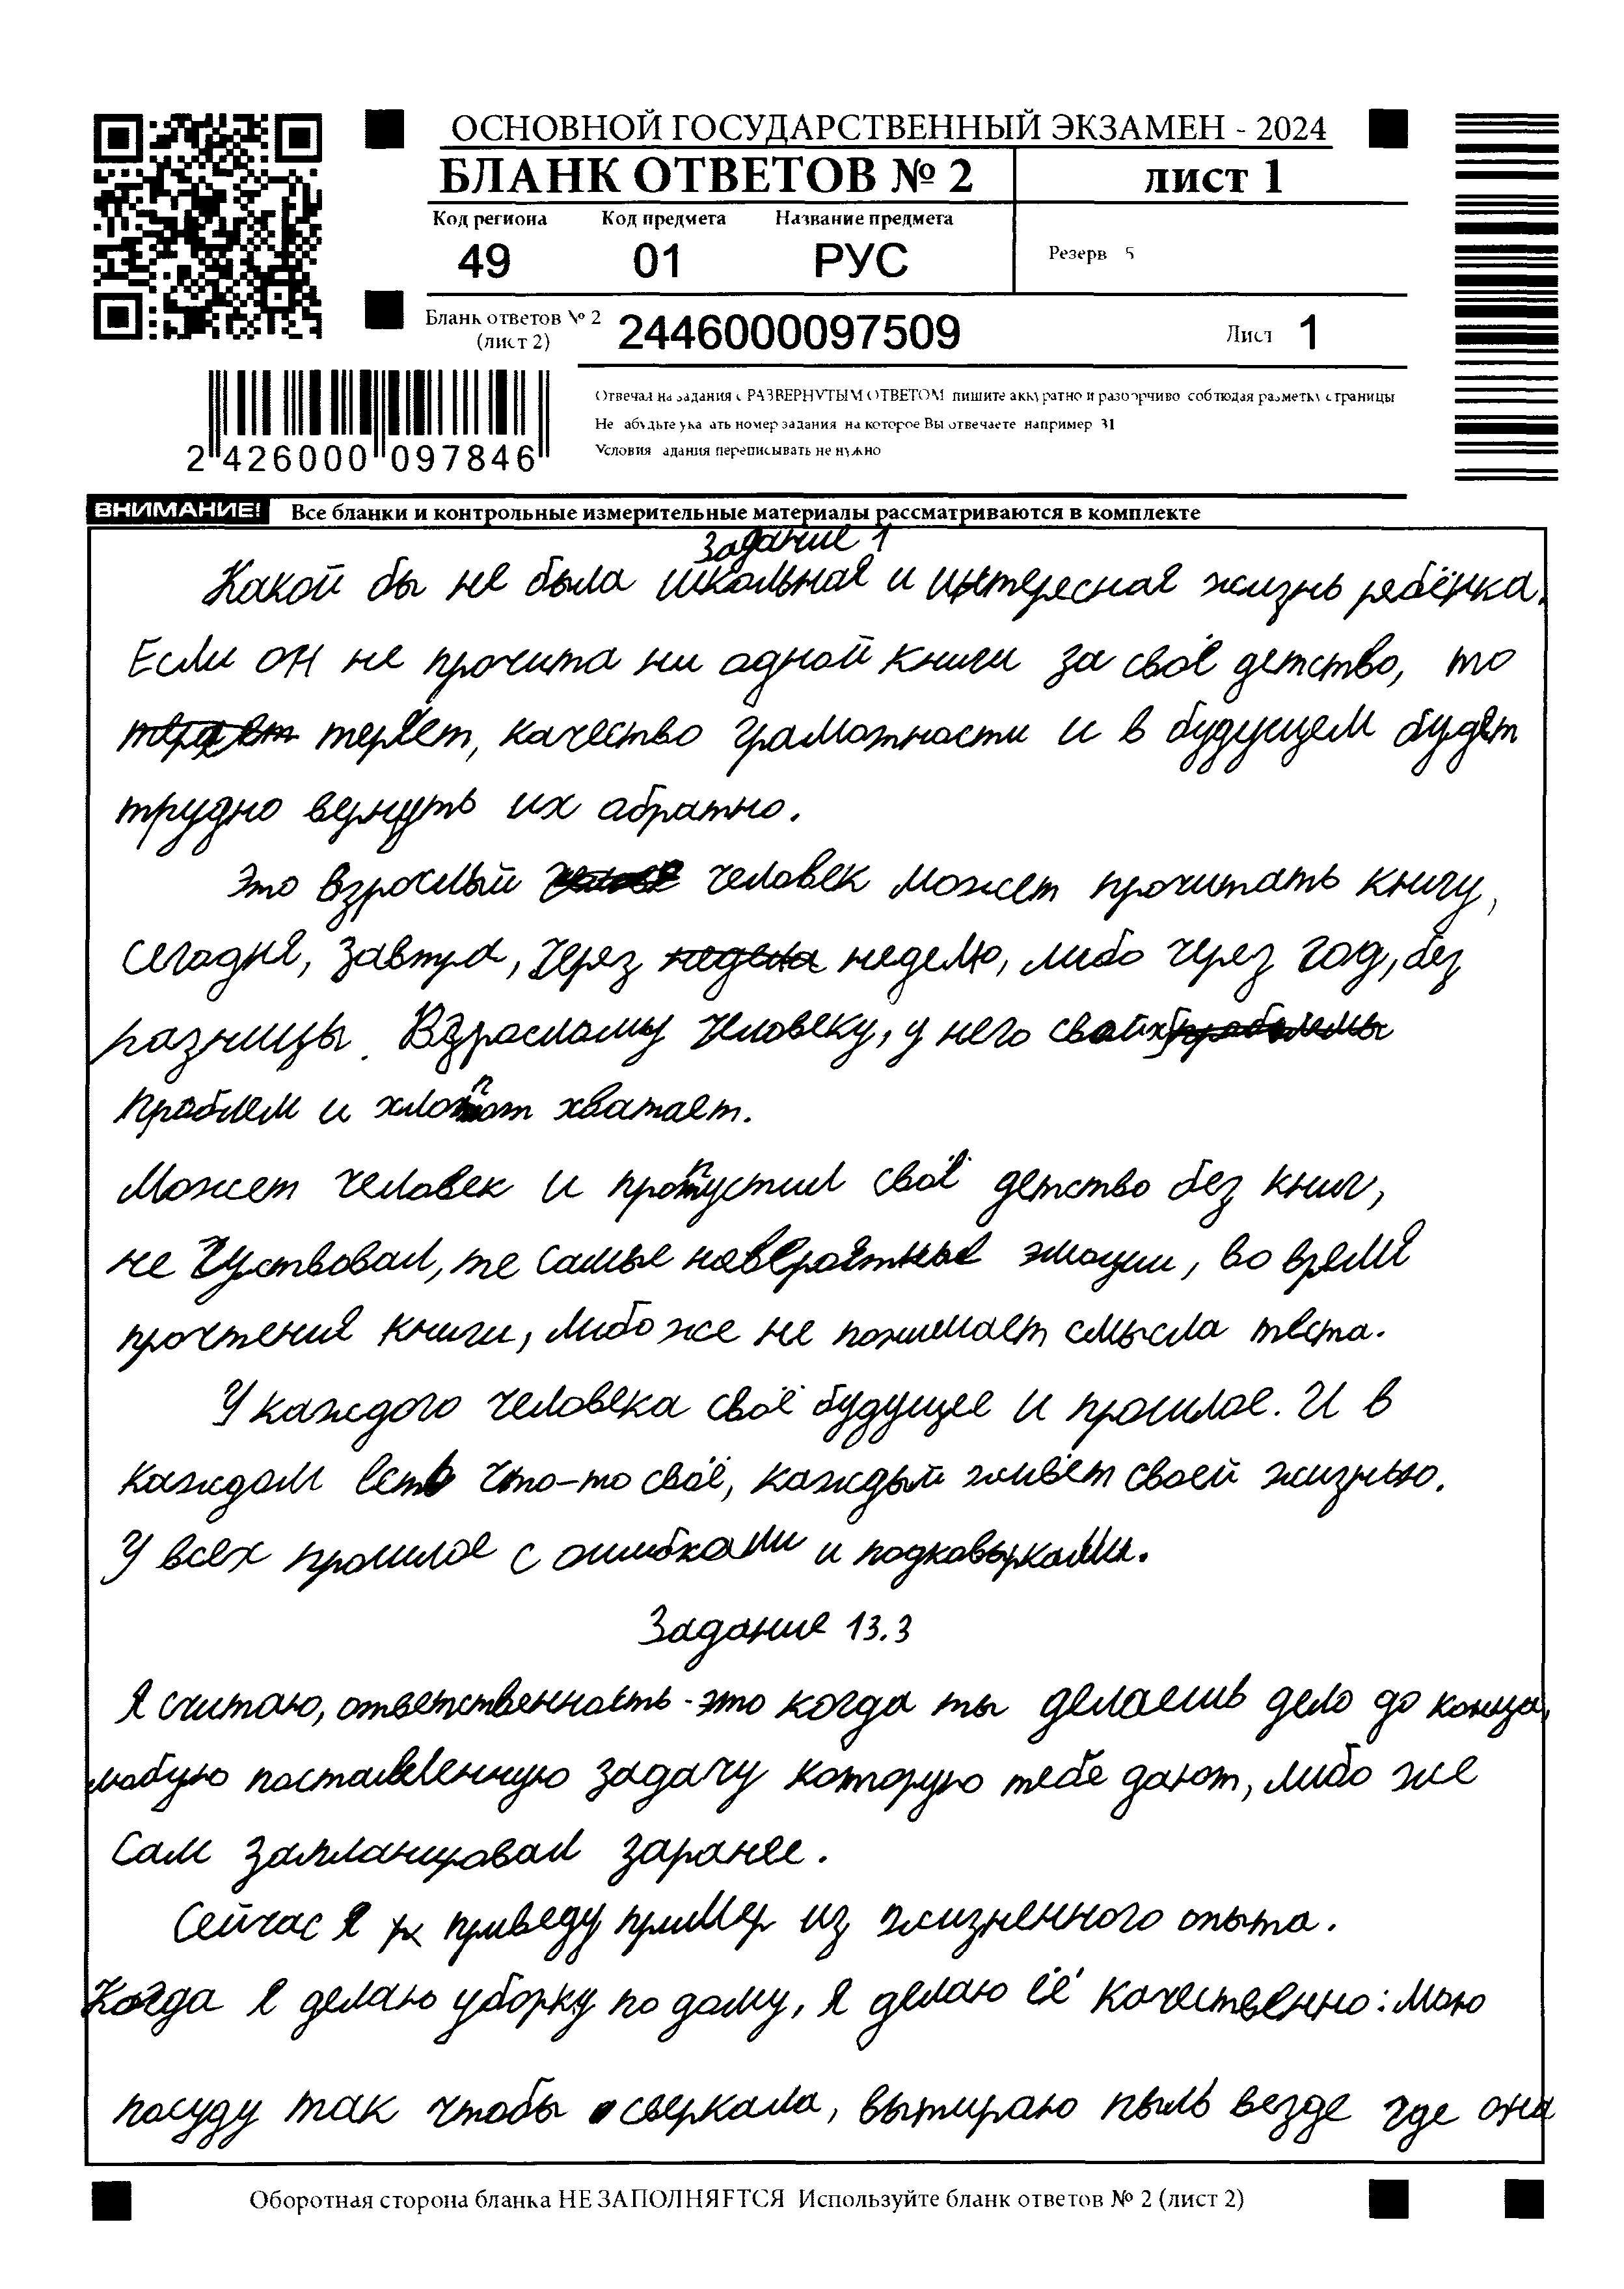 ОСНОВНОЙ ГОСУДАРСТВЕННЫЙ ЭКЗАМЕН - 2024
БЛАНК ОТВЕТОВ № 2 лист 1
Код региона Код предмета Название предмета
49 01 РУС Резерв 5
Бланк ответов № 2 (лист 2) 2446000097509 Лист 1
Отвечая на задания с РАЗВЕРНУТЫМ ОТВЕТОМ пишите аккуратно и разборчиво соблюдая разметку страницы
Не забудьте указать номер задания на которое Вы отвечаете например 31
Условия задания переписывать не нужно
2 426000 097846
ВНИМАНИЕ! Все бланки и контрольные измерительные материалы рассматриваются в комплекте
Задание 1
Какой бы не была школьная и интересная жизнь ребёнка.
Если он не прочита ни одной книги за своё детство, то
теряет, качество грамотности и в будущем будет
трудно вернуть их обратно.
Это взрослый человек может прочитать книгу,
сегодня, завтра, через неделю, либо через год, без
разницы. Взрослому человеку, у него своих
проблем и хлопот хватает.
Может человек и пропустил своё детство без книг,
не чуствовал, те самые невероятные эмоции, во время
прочтения книги, либо же не понимает смысла теста.
У каждого человека своё будущее и прошлое. И в
каждом есть что-то своё, каждый живёт своей жизнью.
У всех прошлое с ошибками и подковырками.
Задание 13.3
Я считаю, ответственность - это когда ты делаешь дело до конца,
любую поставленную задачу которую тебе дают, либо же
сам запланировал заранее.
Сейчас я приведу пример из жизненного опыта.
Когда я делаю уборку по дому, я делаю её качественно: мою
посуду так чтобы сверкала, вытираю пыль везде где она
Оборотная сторона бланка НЕ ЗАПОЛНЯЕТСЯ Используйте бланк ответов № 2 (лист 2)